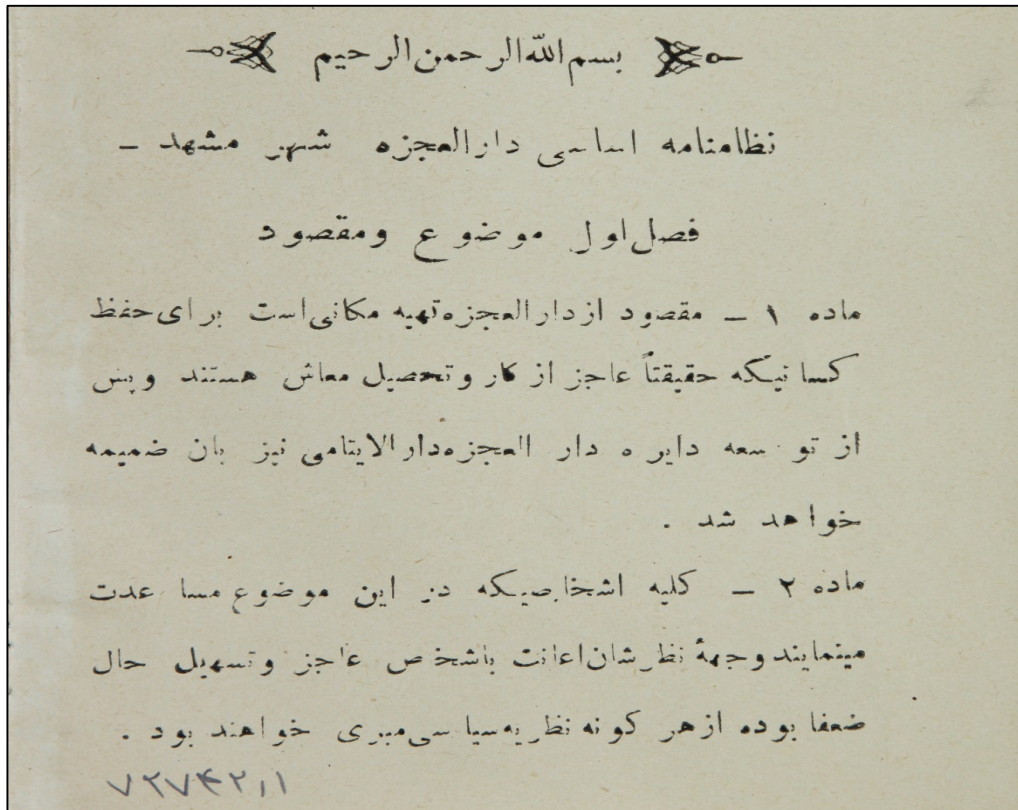 بسم الله الرحمن الرحیم
نظامنامه اساسی دارالعجزه شهر مشهد ـ
فصل اول موضوع ومقصود
ماده ۱ ـ مقصود ازدارالعجزه تهیه مکانی است برای حفظ
کسانیکه حقیقتاً عاجز از کار وتحصیل معاش هستند وپس
از توسعه دایره دار العجزه دارالایتامی نیز بان ضمیمه
خواهد شد .
ماده ۲ ـ کلیه اشخاصیکه در این موضوع مساعدت
مینمایند وجهۀ نظرشان اعانت باشخص عاجز وتسهیل حال
ضعفا بوده ازهر کونه نظریه سیاسی مبری خواهند بود .
۷۲۷۴۲٫۱